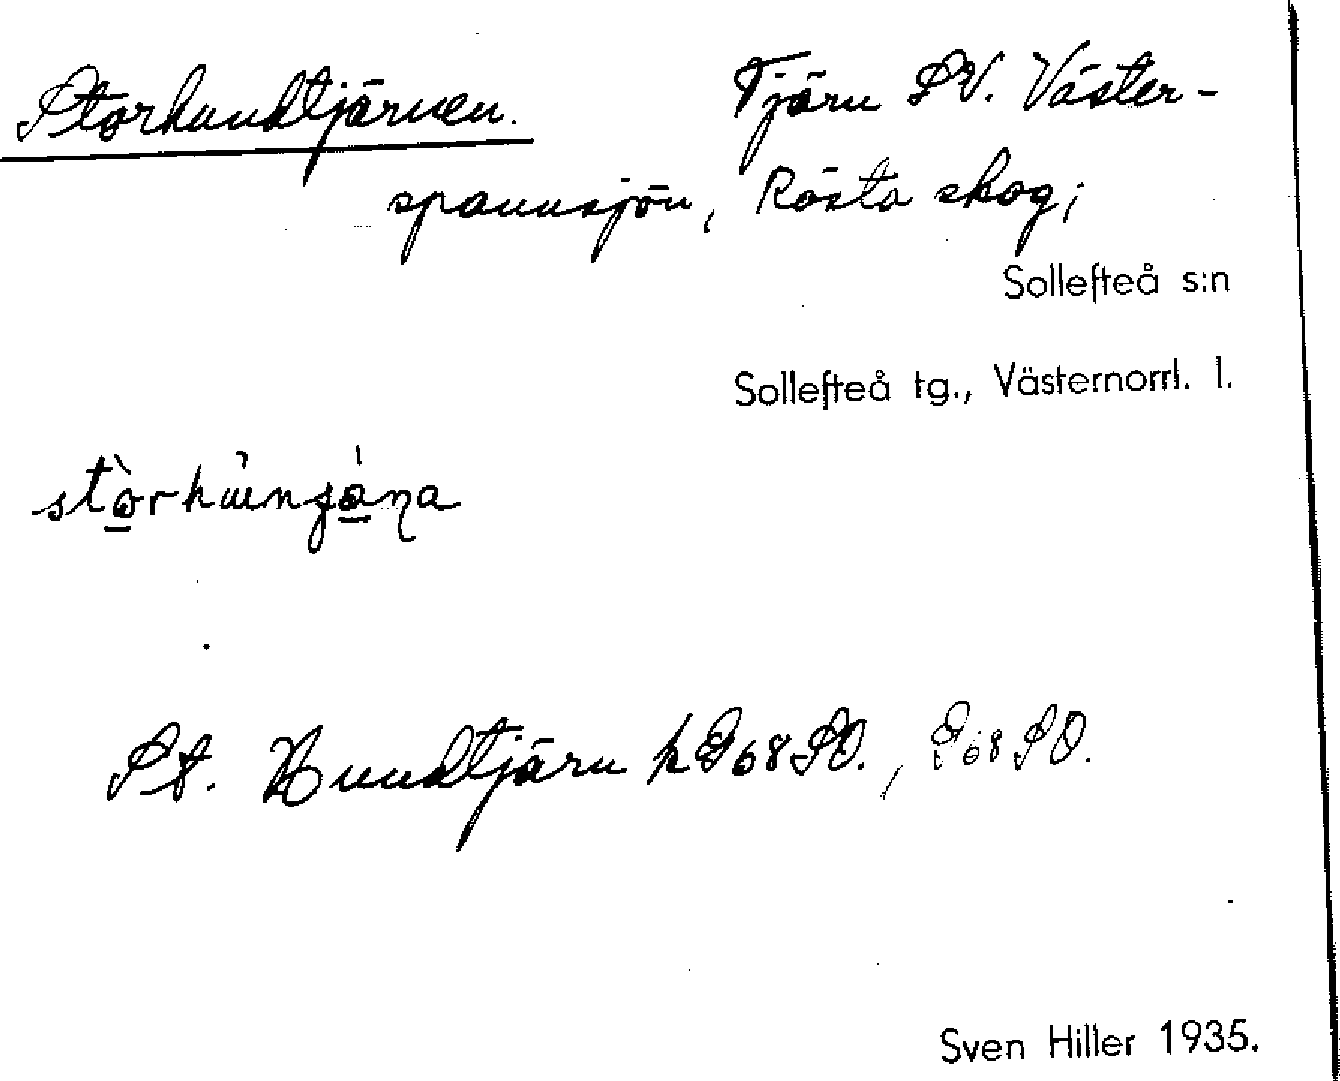 Storhundtjärnen. Tjärn SV. Väster-
spannsjön, Rösta skog;
Sollefteå s:n
Sollefteå tg., Västernorrl. l.
St. Hundtjärn k G68SO., G68SO.
Sven Hiller 1935.